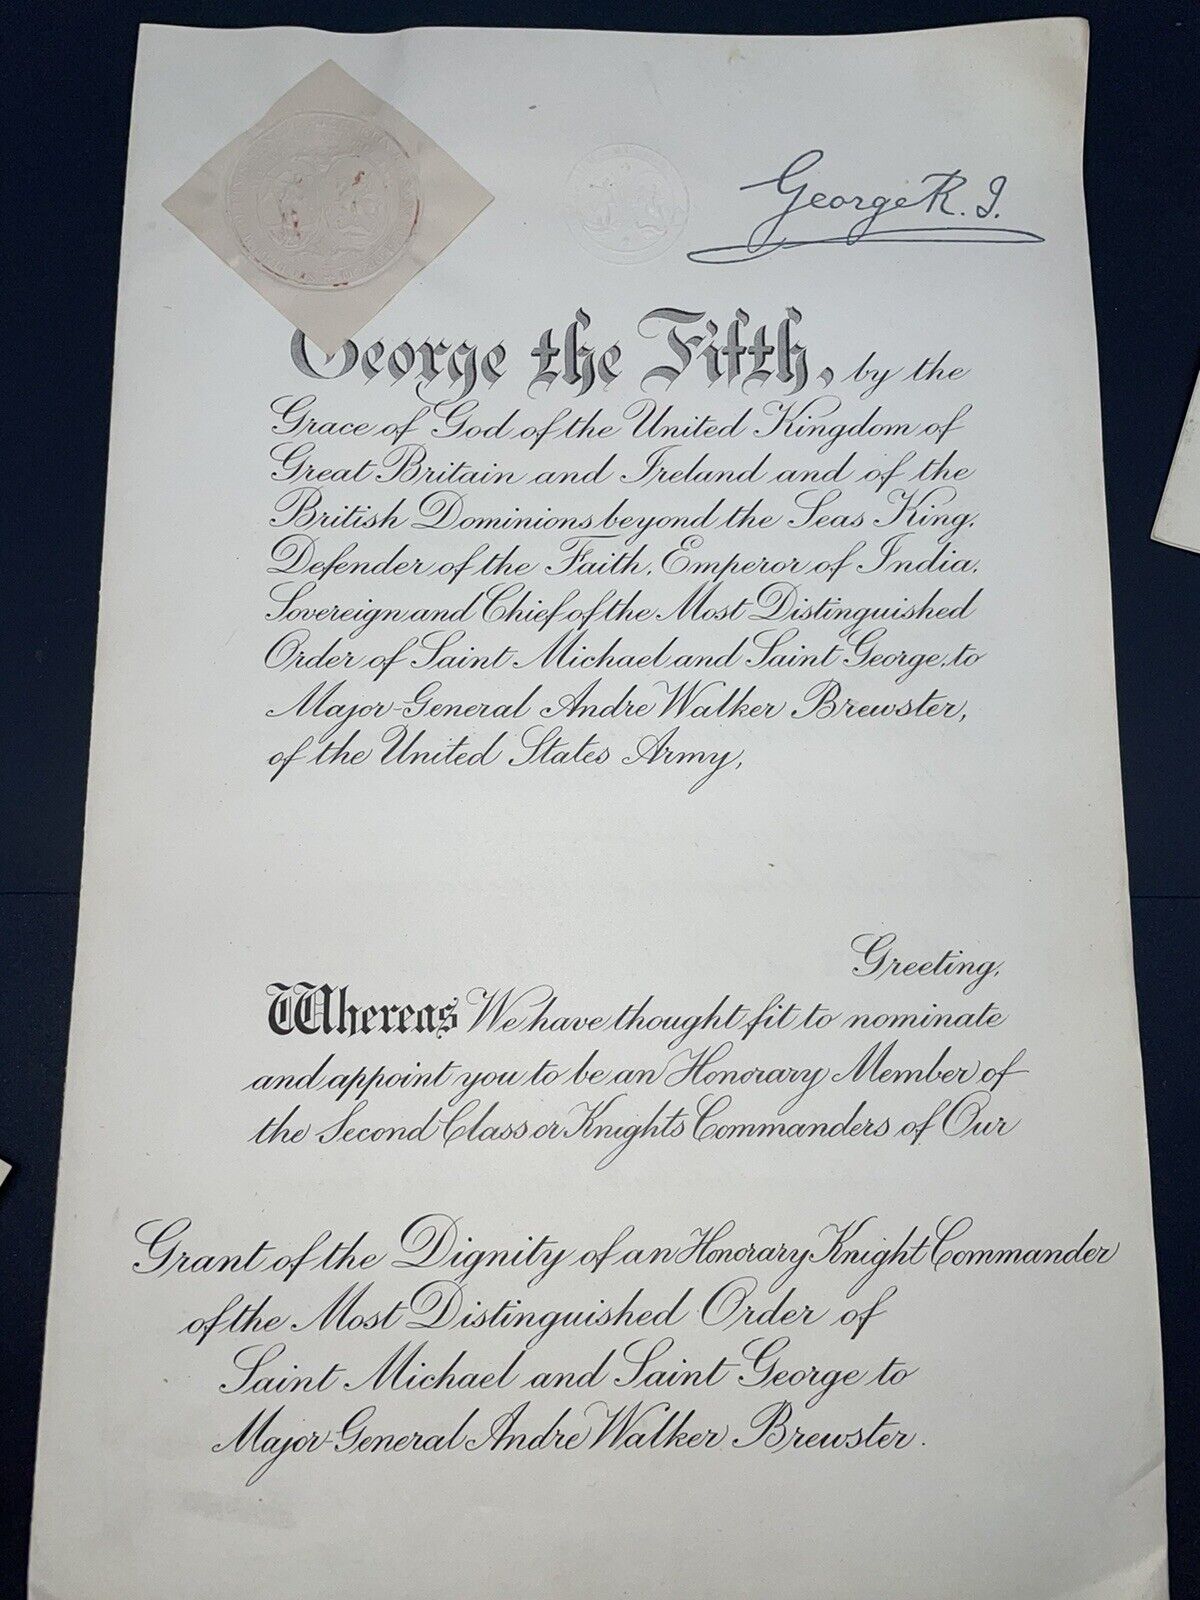 George R. I.
George the Fifth, by the
Grace of God of the United Kingdom of
Great Britain and Ireland and of the
British Dominions beyond the Seas King,
Defender of the Faith, Emperor of India,
Sovereign and Chief of the Most Distinguished
Order of Saint Michael and Saint George, to
Major-General Andre Walker Brewster,
of the United States Army,
Greeting,
Whereas We have thought fit to nominate
and appoint you to be an Honorary Member of
the Second Class or Knights Commanders of Our
Grant of the Dignity of an Honorary Knight Commander
of the Most Distinguished Order of
Saint Michael and Saint George to
Major-General Andre Walker Brewster.